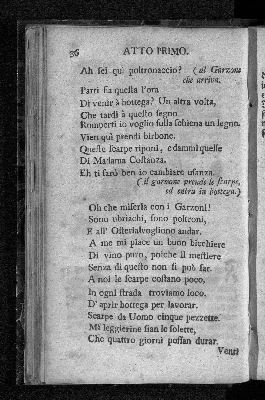 36 ATTO PRIMO.
Ah sei quì poltronaccio? (al Garzone
che arriva.
Parti sia questa l'ora
Di venir à bottega? Un altra volta,
Che tardi à questo segno
Romperti io voglio sulla schiena un legno.
Vien quì prendi birbone.
Queste scarpe riponi, e dammi quelle
Di Madama Costanza.
Eh ti farò ben io cambiare usanza.
(il garzone prende le scarpe,
ed entra in bottega.)
Oh che miseria con i Garzoni!
Sono ubriachi, sono poltroni,
E all' Osteria vogliono andar.
A me mi piace un buon bicchiere
Di vino puro, poiche il mestiere
Senza di questo non si può far.
A noi le scarpe costano poco,
In ogni strada troviamo loco,
D' aprir bottega per lavorar.
Scarpe da Uomo cinque pezzette.
Mà leggierine sian le solette,
Che quattro giorni possan durar.
Venti